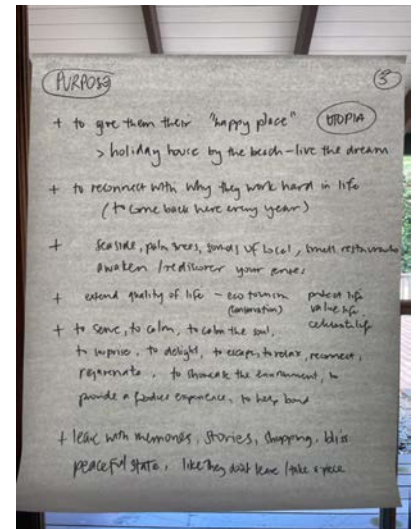 PURPOSE
3
+ to give them their "happy place"
UTOPIA
> holiday house by the beach - live the dream
+ to reconnect with why they work hard in life
(to come back here every year)
+ seaside, palm trees, sounds of local, small restaurants
awaken / rediscover your
+ extend quality of life - eco tourism
(conservation)
protect life
value life
celebrate life
+ to serve, to calm, to calm the soul,
to surprise, to delight, to escape, to relax, reconnect,
rejuvenate, to showcase the environment, to
provide a foodies experience, to help bond
+ leave with memories, stories, shopping, bliss
peaceful state, like they don't leave / take a piece